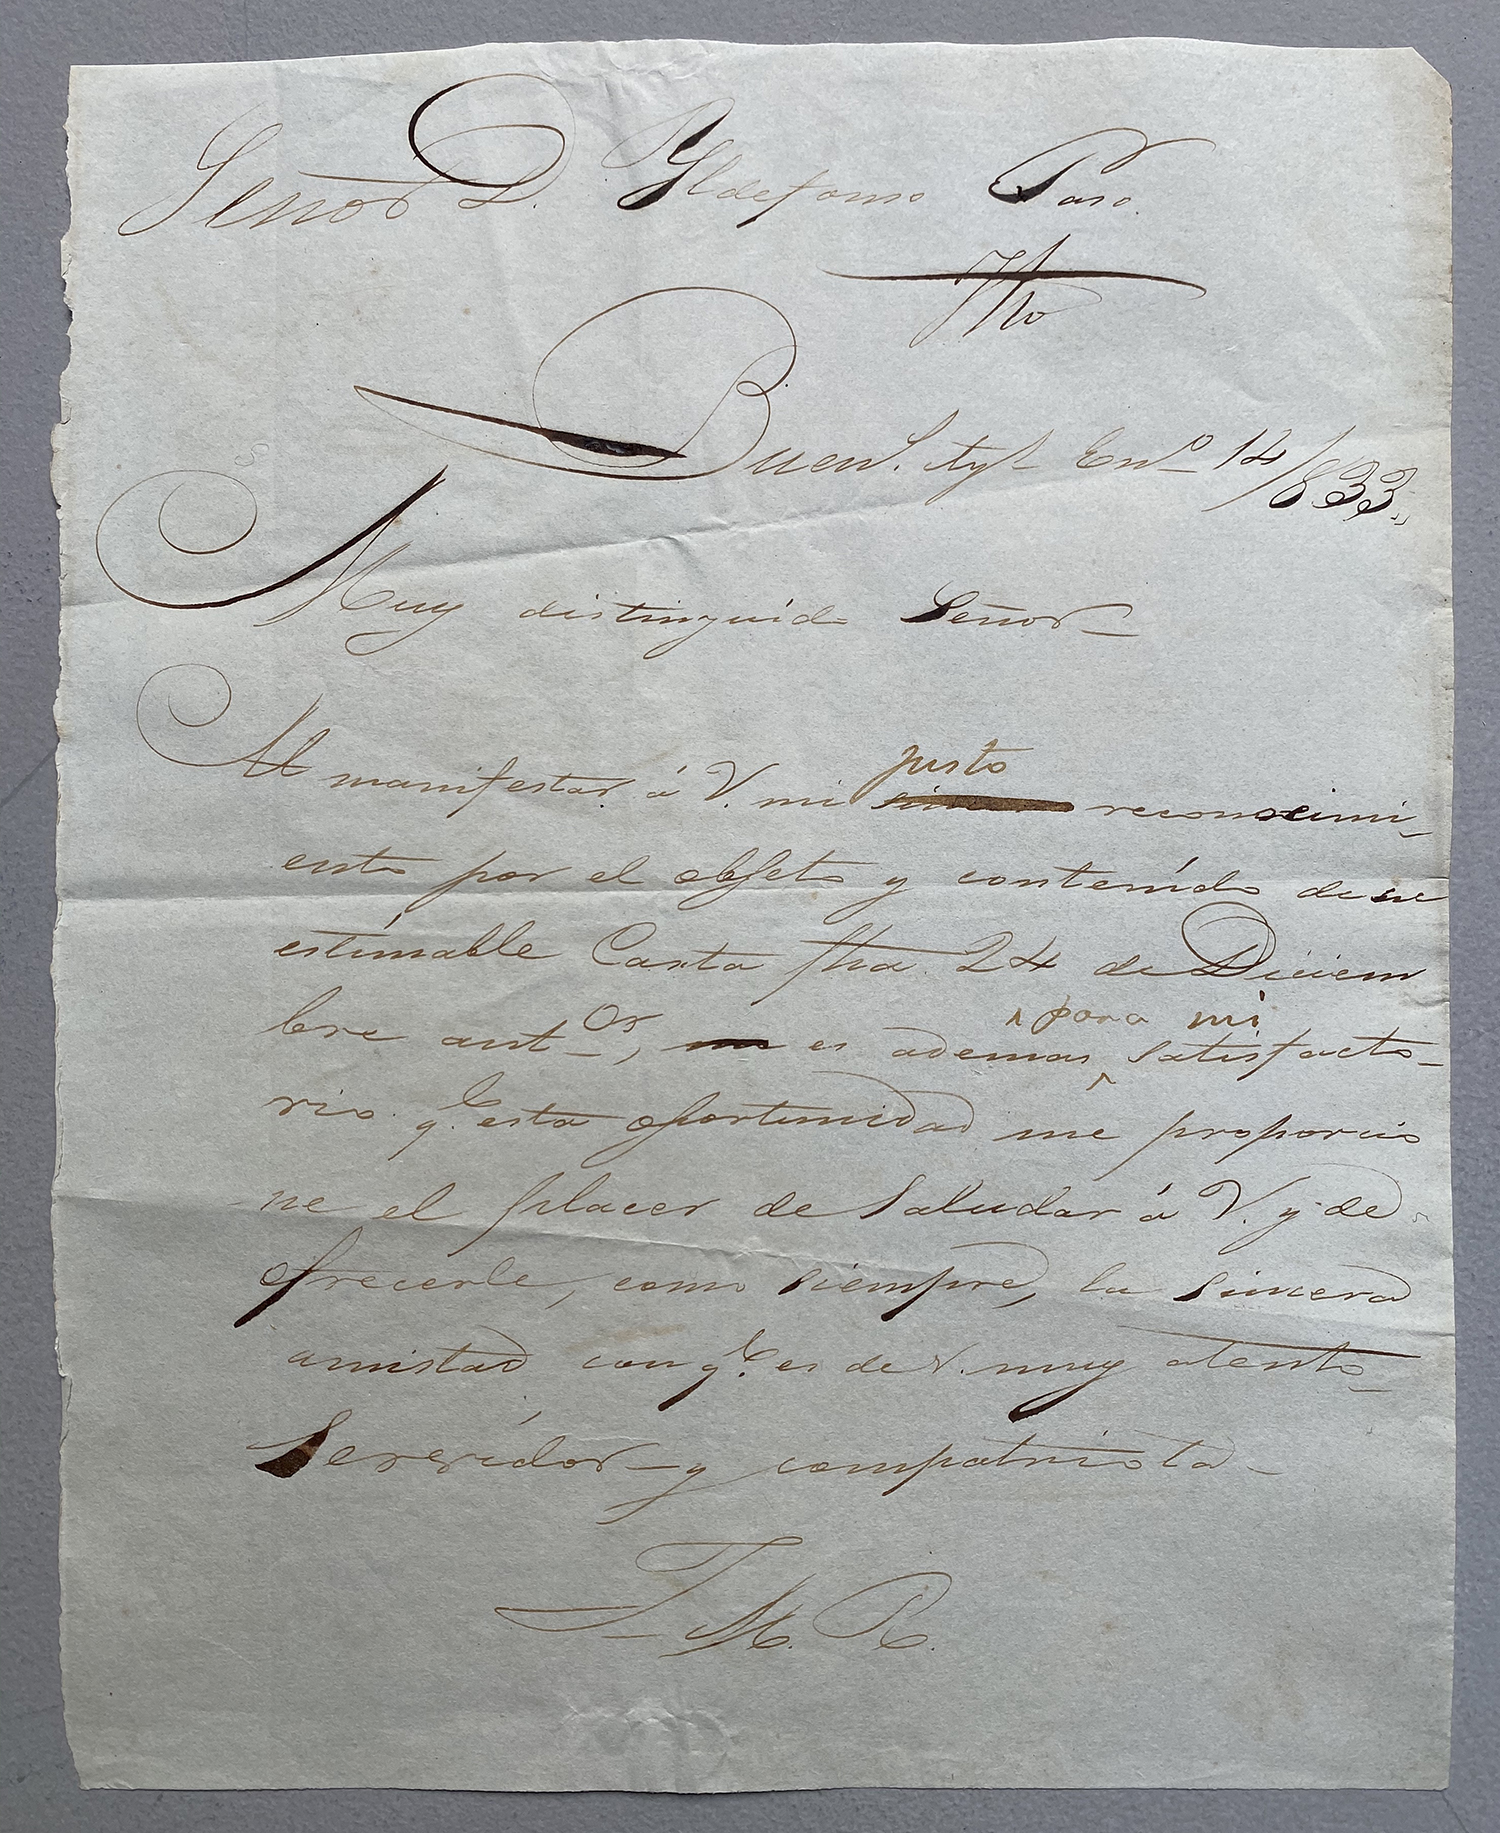 Señor D. Yldefonso Paso.
Buen.s Ay.s En.o 14/833.
Muy distinguido Señor
Al manifestar á V. mi justo reconocimi-
ento por el objeto y contenido de su
estimable Carta fha. 24 de Diciem
bre ant.or, es ademas para mi satisfacto-
rio q.e esta oportunidad me proporcio
ne el placer de saludar á V. y de
ofrecerle, como siempre, la sincera
amistad con q.e es de V. muy atento
Servidor y compatriota
T. M. R.